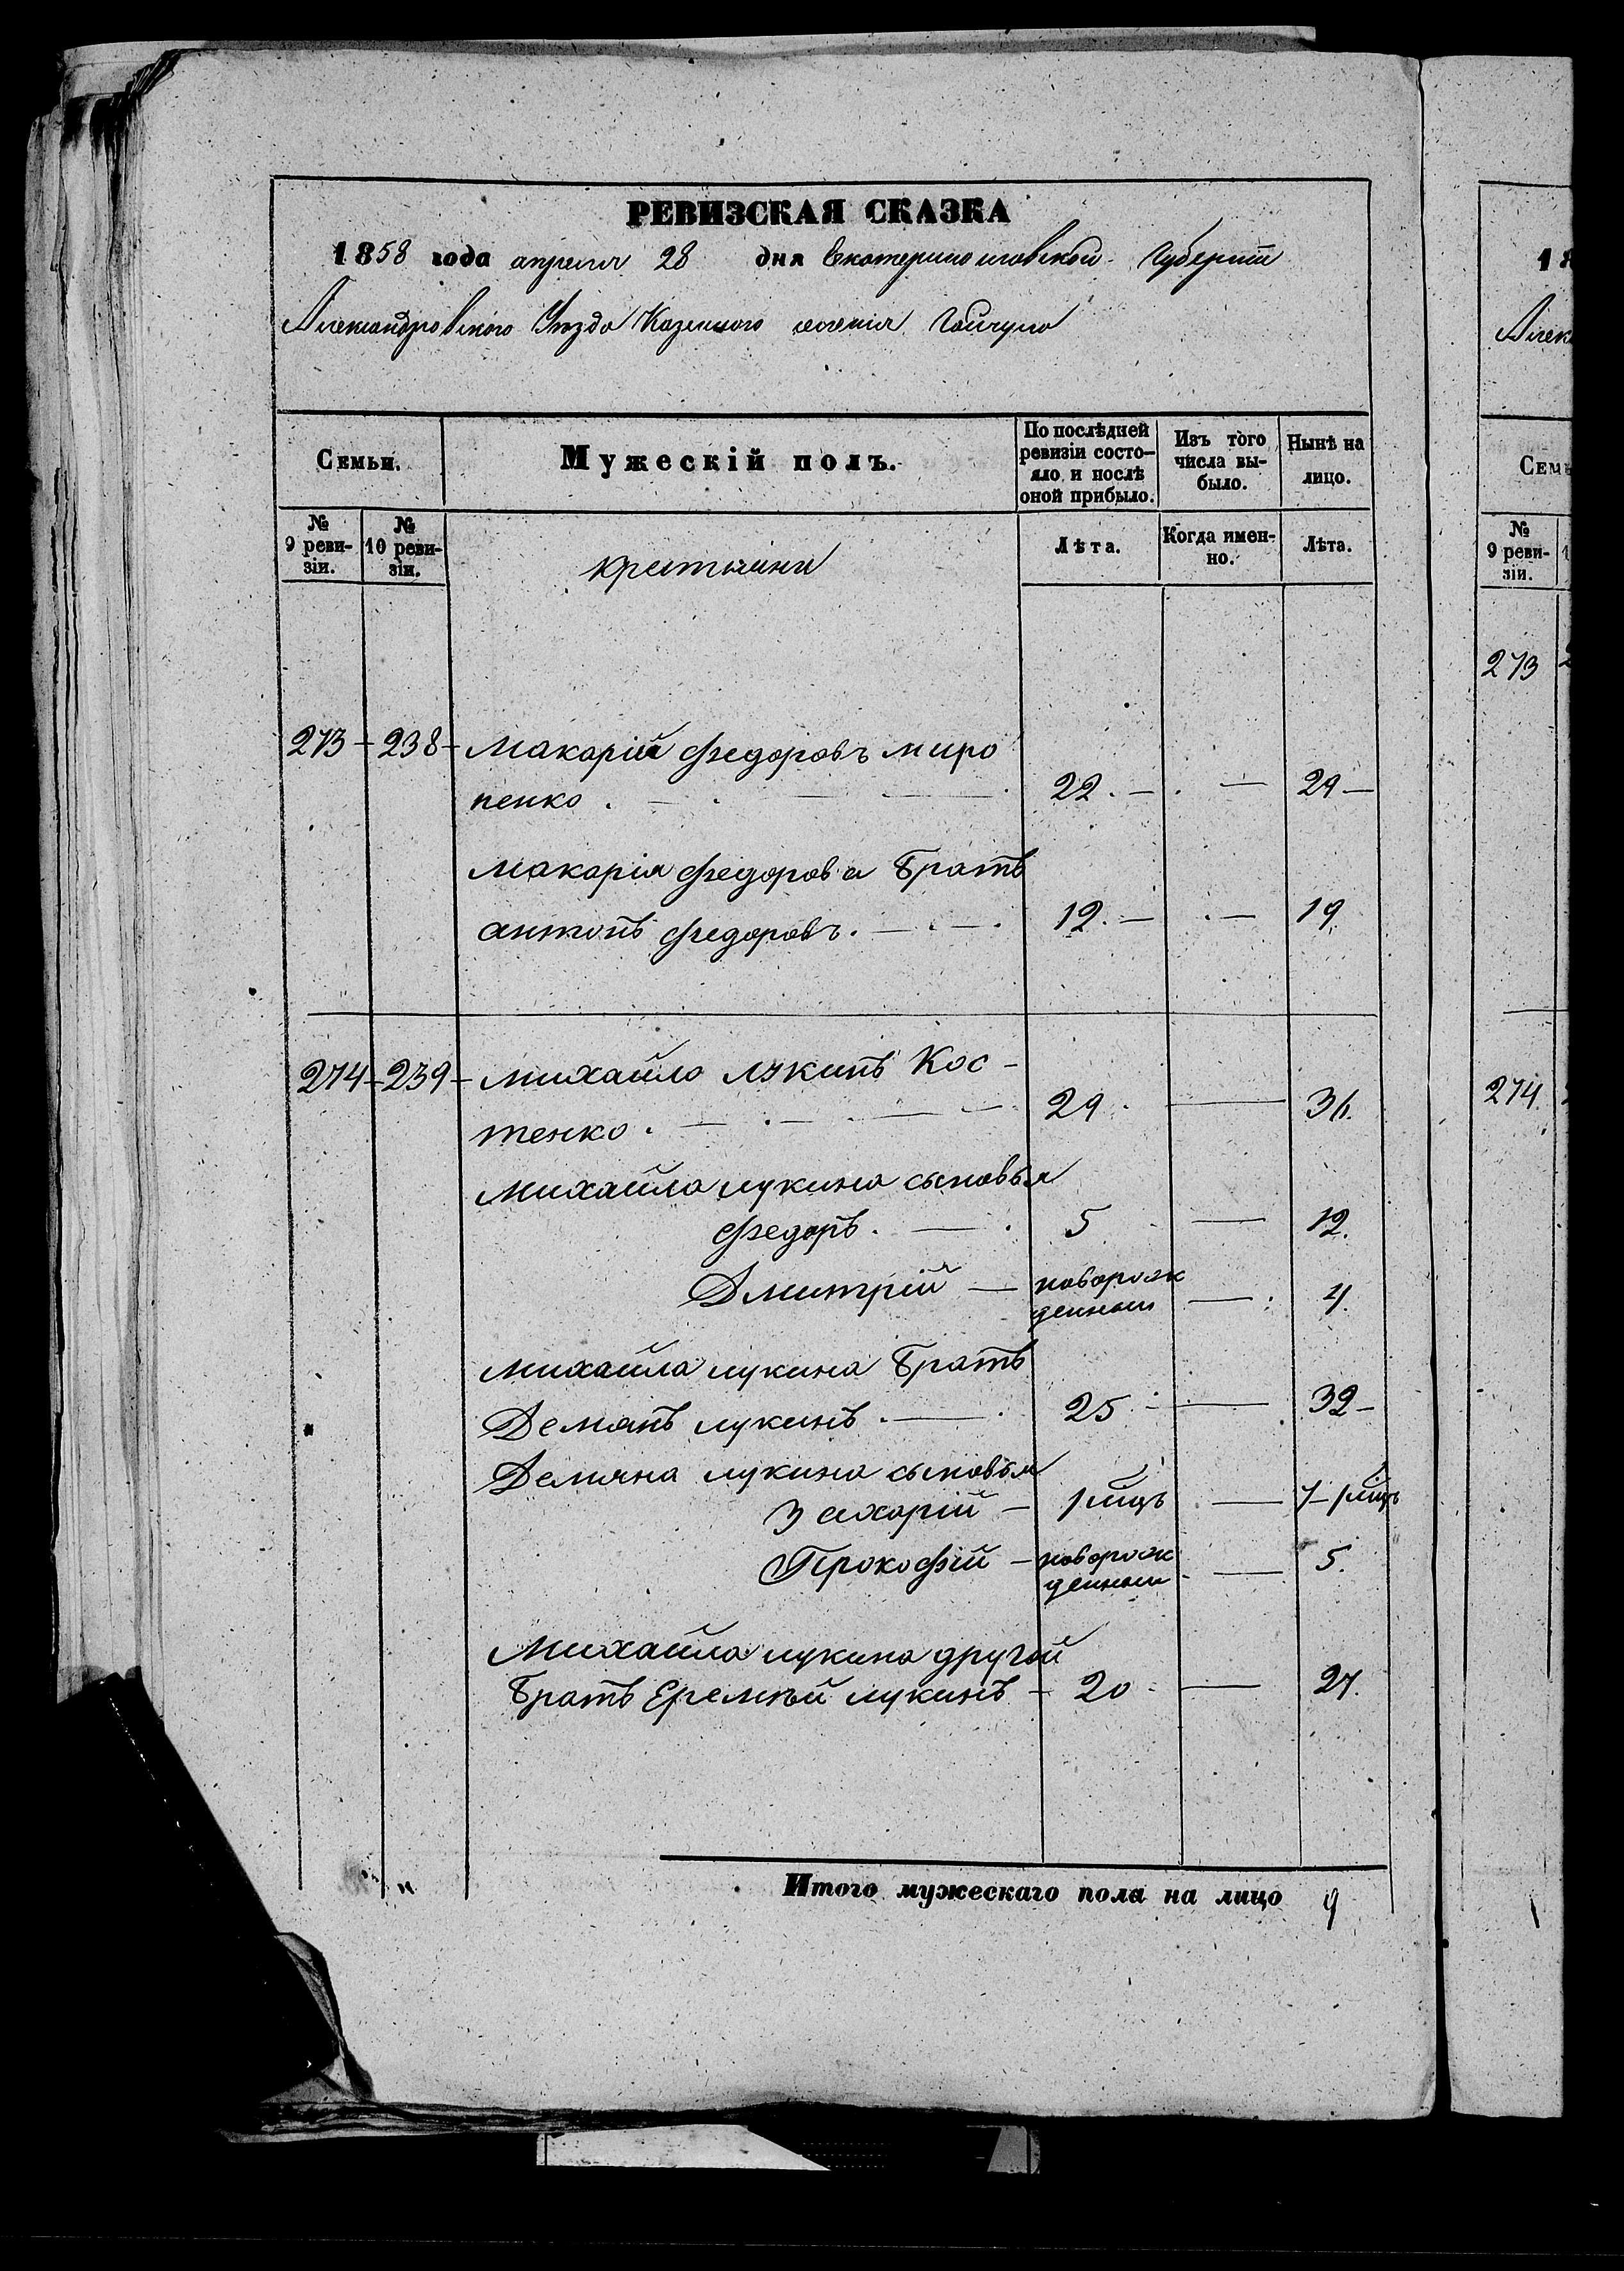 РЕВИЗСКАЯ СКАЗКА
1858 года апреля 28 дня Екатеринославской Губернии
Александровского Уезда Казенного селения Гайчула
Семьи.
Мужескій полъ.
По послѣдней ревизіи состо-
яло и послѣ оной прибыло.
Изъ того числа вы-
было.
Нынѣ на лицо.
№ 9 реви-
зіи.
№ 10 реви-
зіи.
крестьяне
Лѣта.
Когда имен-
но.
Лѣта.
273 - 238 - Макарій Федоровъ Миро
пенко . — 22. — . — 29 —
Макарія Федорова Братъ
антонъ Федоровъ. — 12. — . — 19
274 - 239 - Михайло Лукинъ Кос -
тенко . — 29 . — 36.
Михайла лукина сыновья
Федоръ . — 5 — 12.
Дмитрій — новорож
денный — 4.
Михайла лукина Братъ
Демянъ лукинъ . — 25 — 32 -
Демяна лукина сыновья
Захарій — 1 мцъ — 7 - 1 мцъ
Прокофій — новорож
денный — 5.
Михайла лукина другой
Братъ Еремѣй лукинъ - 20 - — 27.
Итого мужескаго пола на лицо 9
18
Алек
Семь
№ 9 реви-
зіи.
273
274